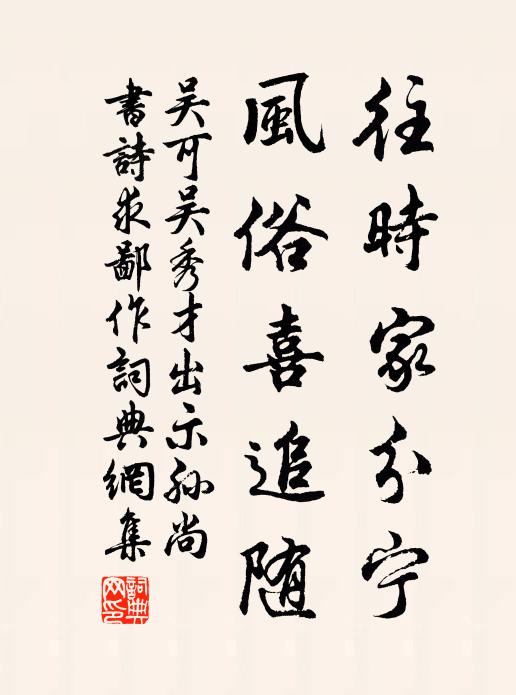 往時家分宁
風俗喜追随
吴可吴秀才出示孙尚
書詩求鄙作詞典網集
詞典网印